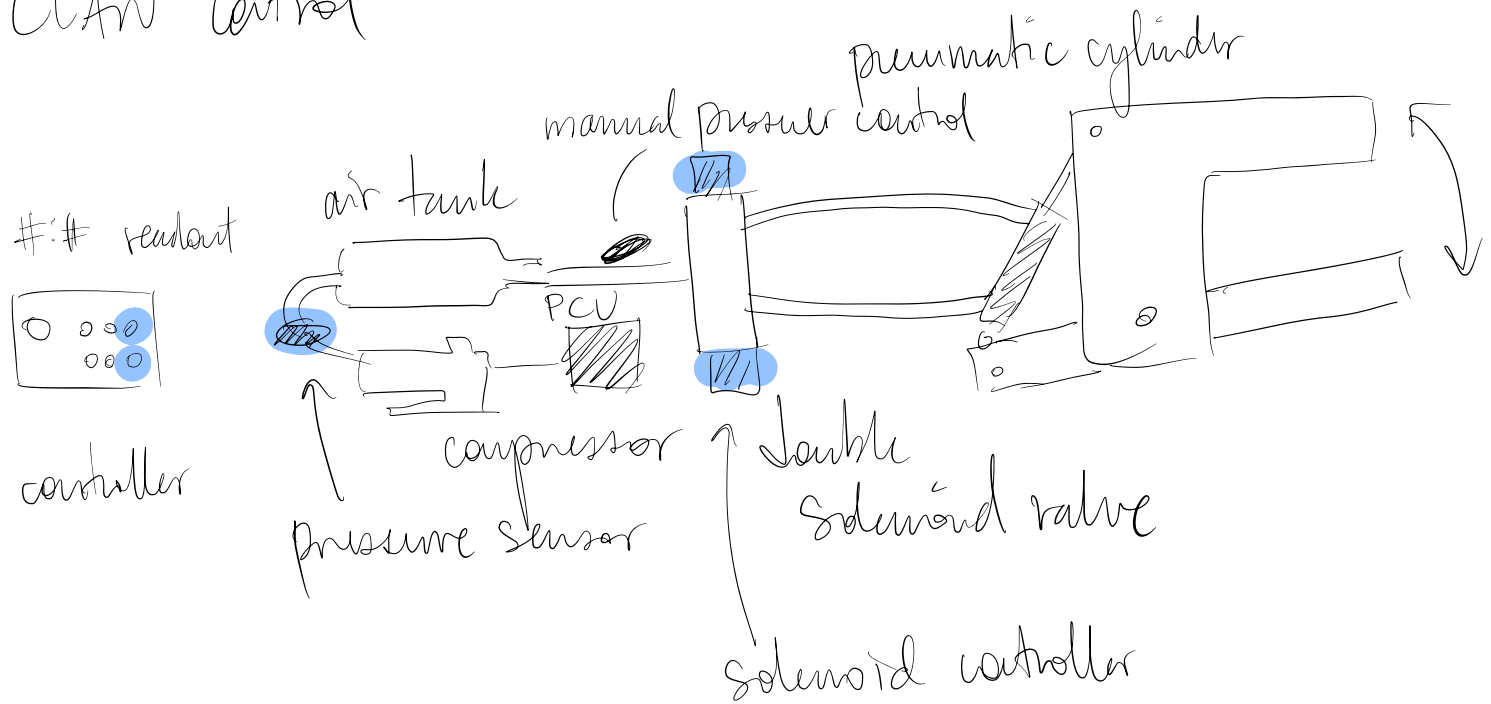 CLAW Control
pneumatic cylinder
manual pressure control
air tank
#:# readout
PCU
compressor
double
solenoid valve
controller
pressure sensor
solenoid controller